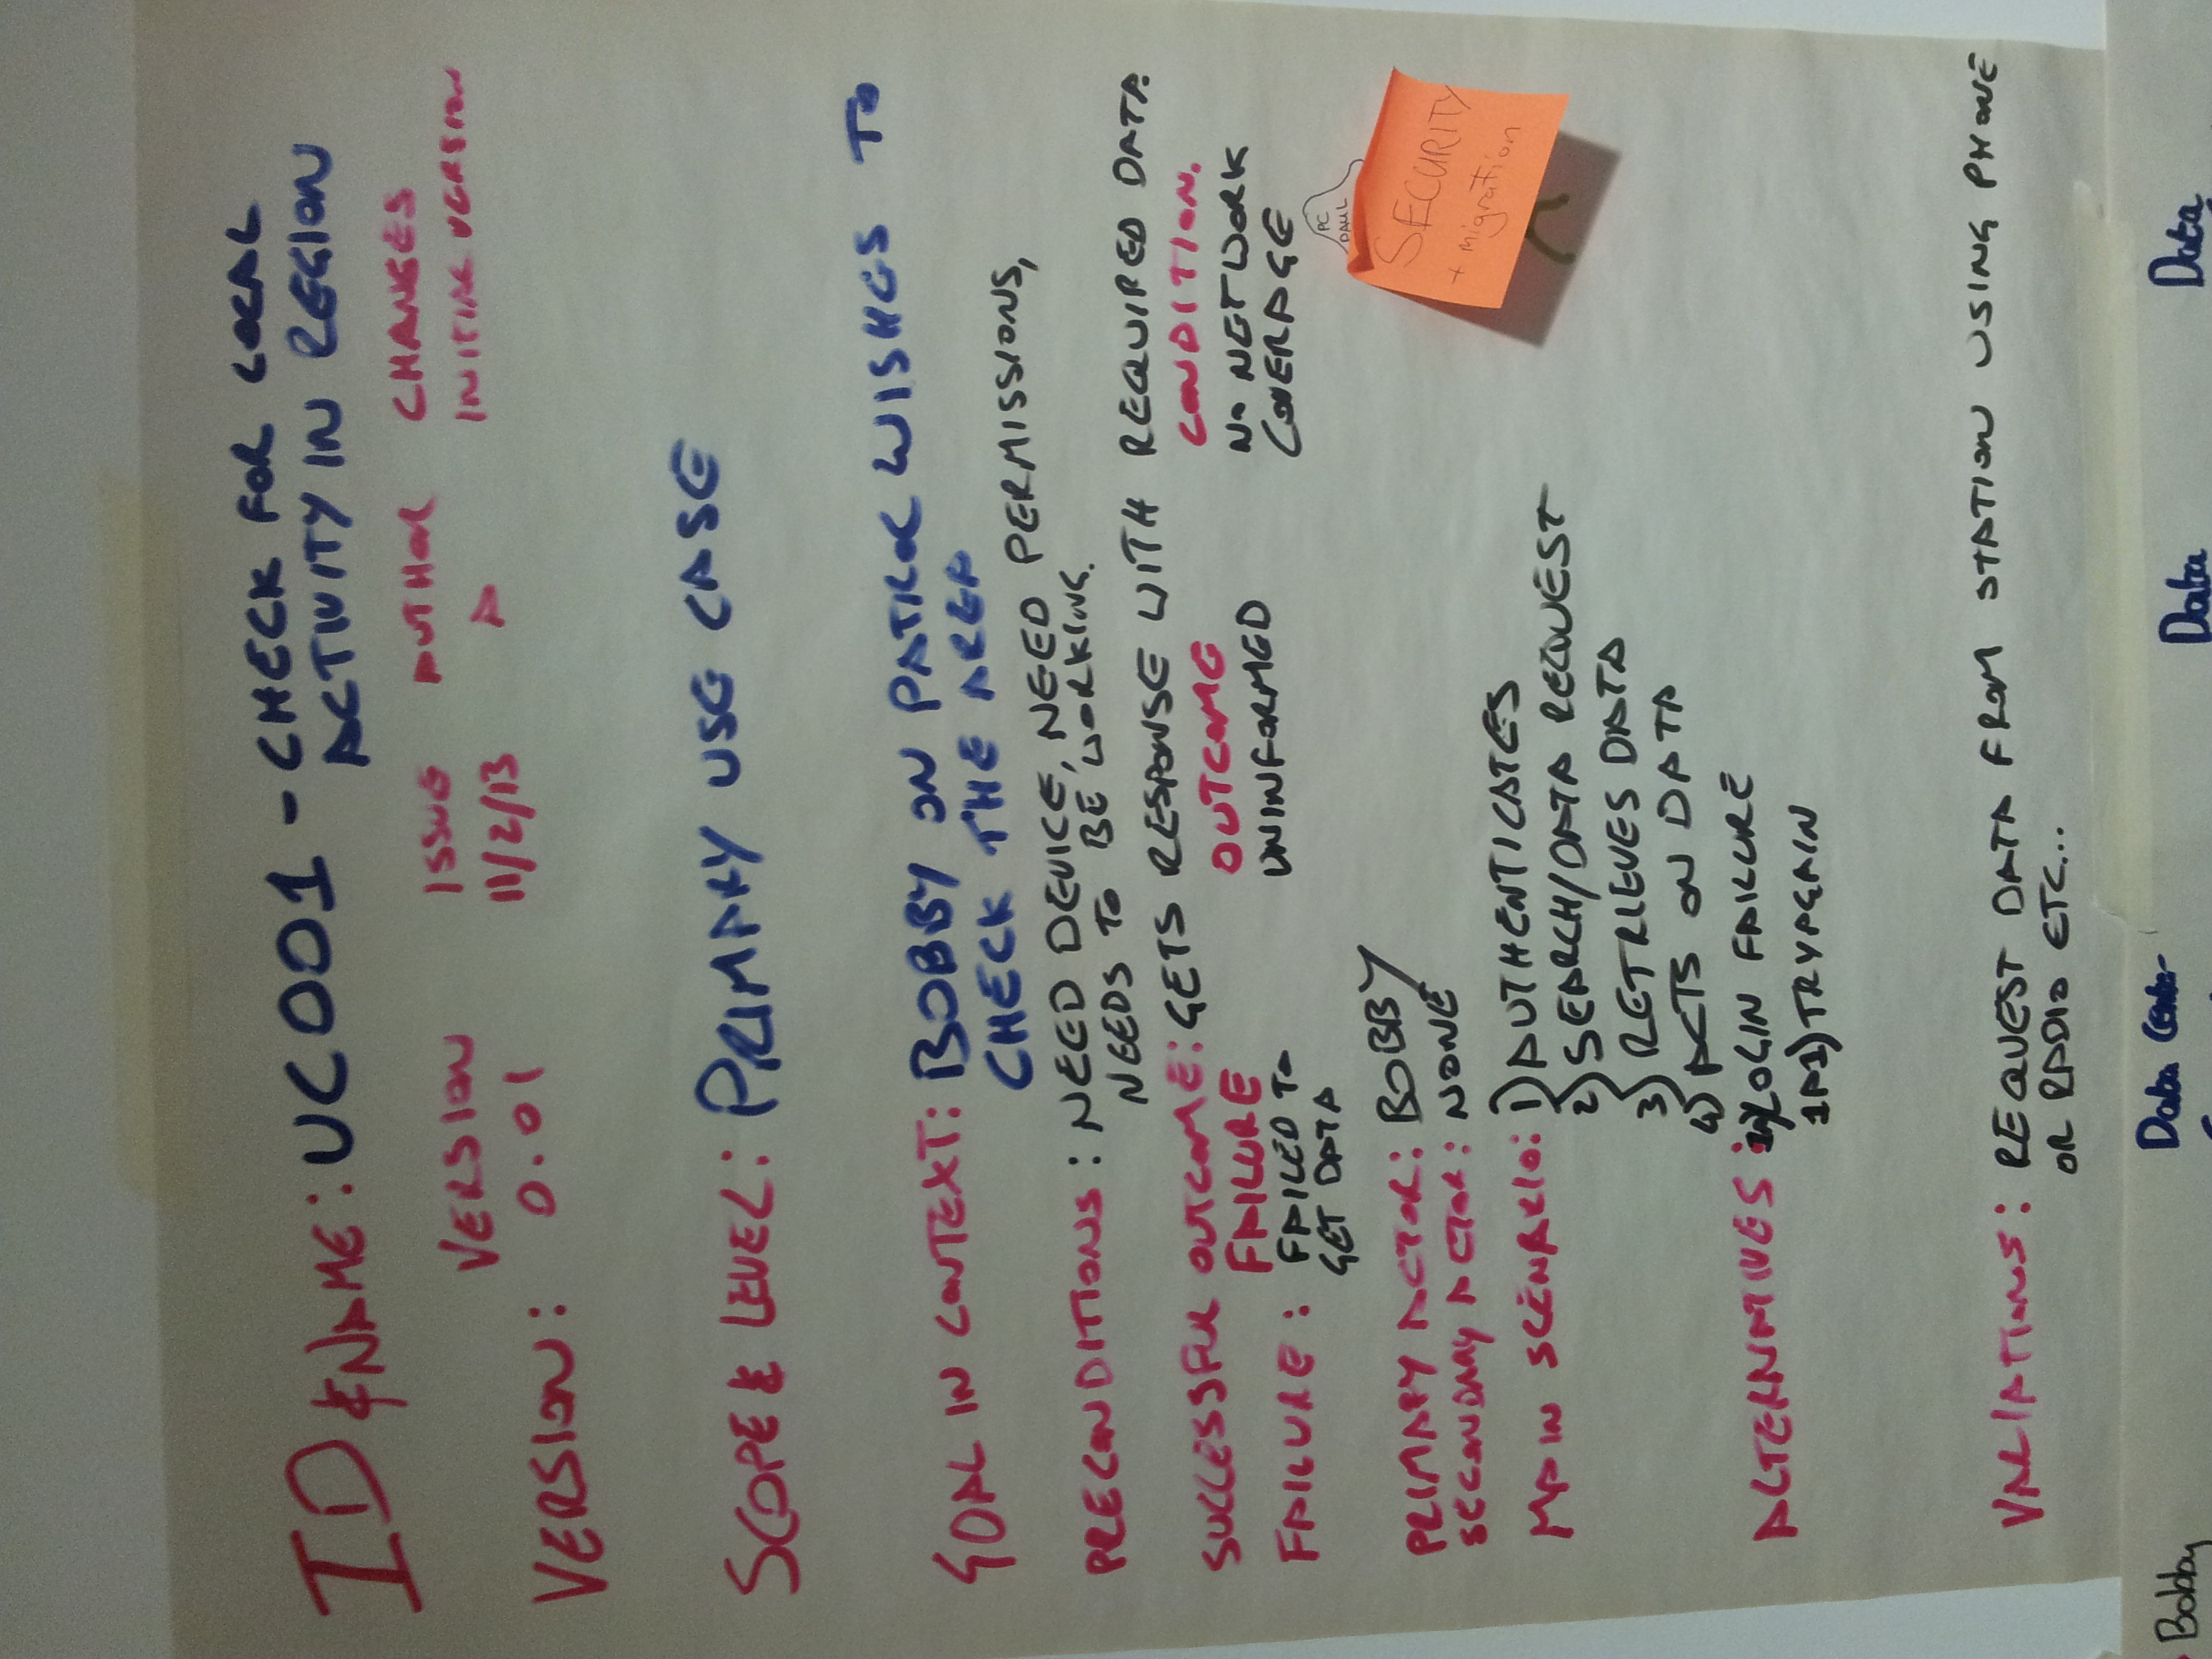 ID & NAME: UC001 - CHECK FOR LOCAL
ACTIVITY IN REGION
VERSION ISSUE AUTHOR CHANGES
VERSION: 0.01 11/2/13 A INITIAL VERSION
SCOPE & LEVEL: PRIMARY USE CASE
GOAL IN CONTEXT: BOBBY ON PATROL WISHES TO
CHECK THE AREA
PRECONDITIONS: NEED DEVICE, NEED PERMISSIONS,
NEEDS TO BE WORKING.
SUCCESSFUL OUTCOME: GETS RESPONSE WITH REQUIRED DATA.
FAILURE OUTCOME CONDITION.
FAILURE: FAILED TO UNINFORMED NO NETWORK
GET DATA COVERAGE
PC
PAUL
SECURITY
+ migration
PRIMARY ACTOR: BOBBY
SECONDARY ACTOR: NONE
MAIN SCENARIO: 1) AUTHENTICATES
2) SEARCH/DATA REQUEST
3) RETRIEVES DATA
4) ACTS ON DATA
ALTERNATIVES: LOGIN FAILURE
1A1) TRY AGAIN
VARIATIONS: REQUEST DATA FROM STATION USING PHONE
OR RADIO ETC...
Bobby Data Center Data Data